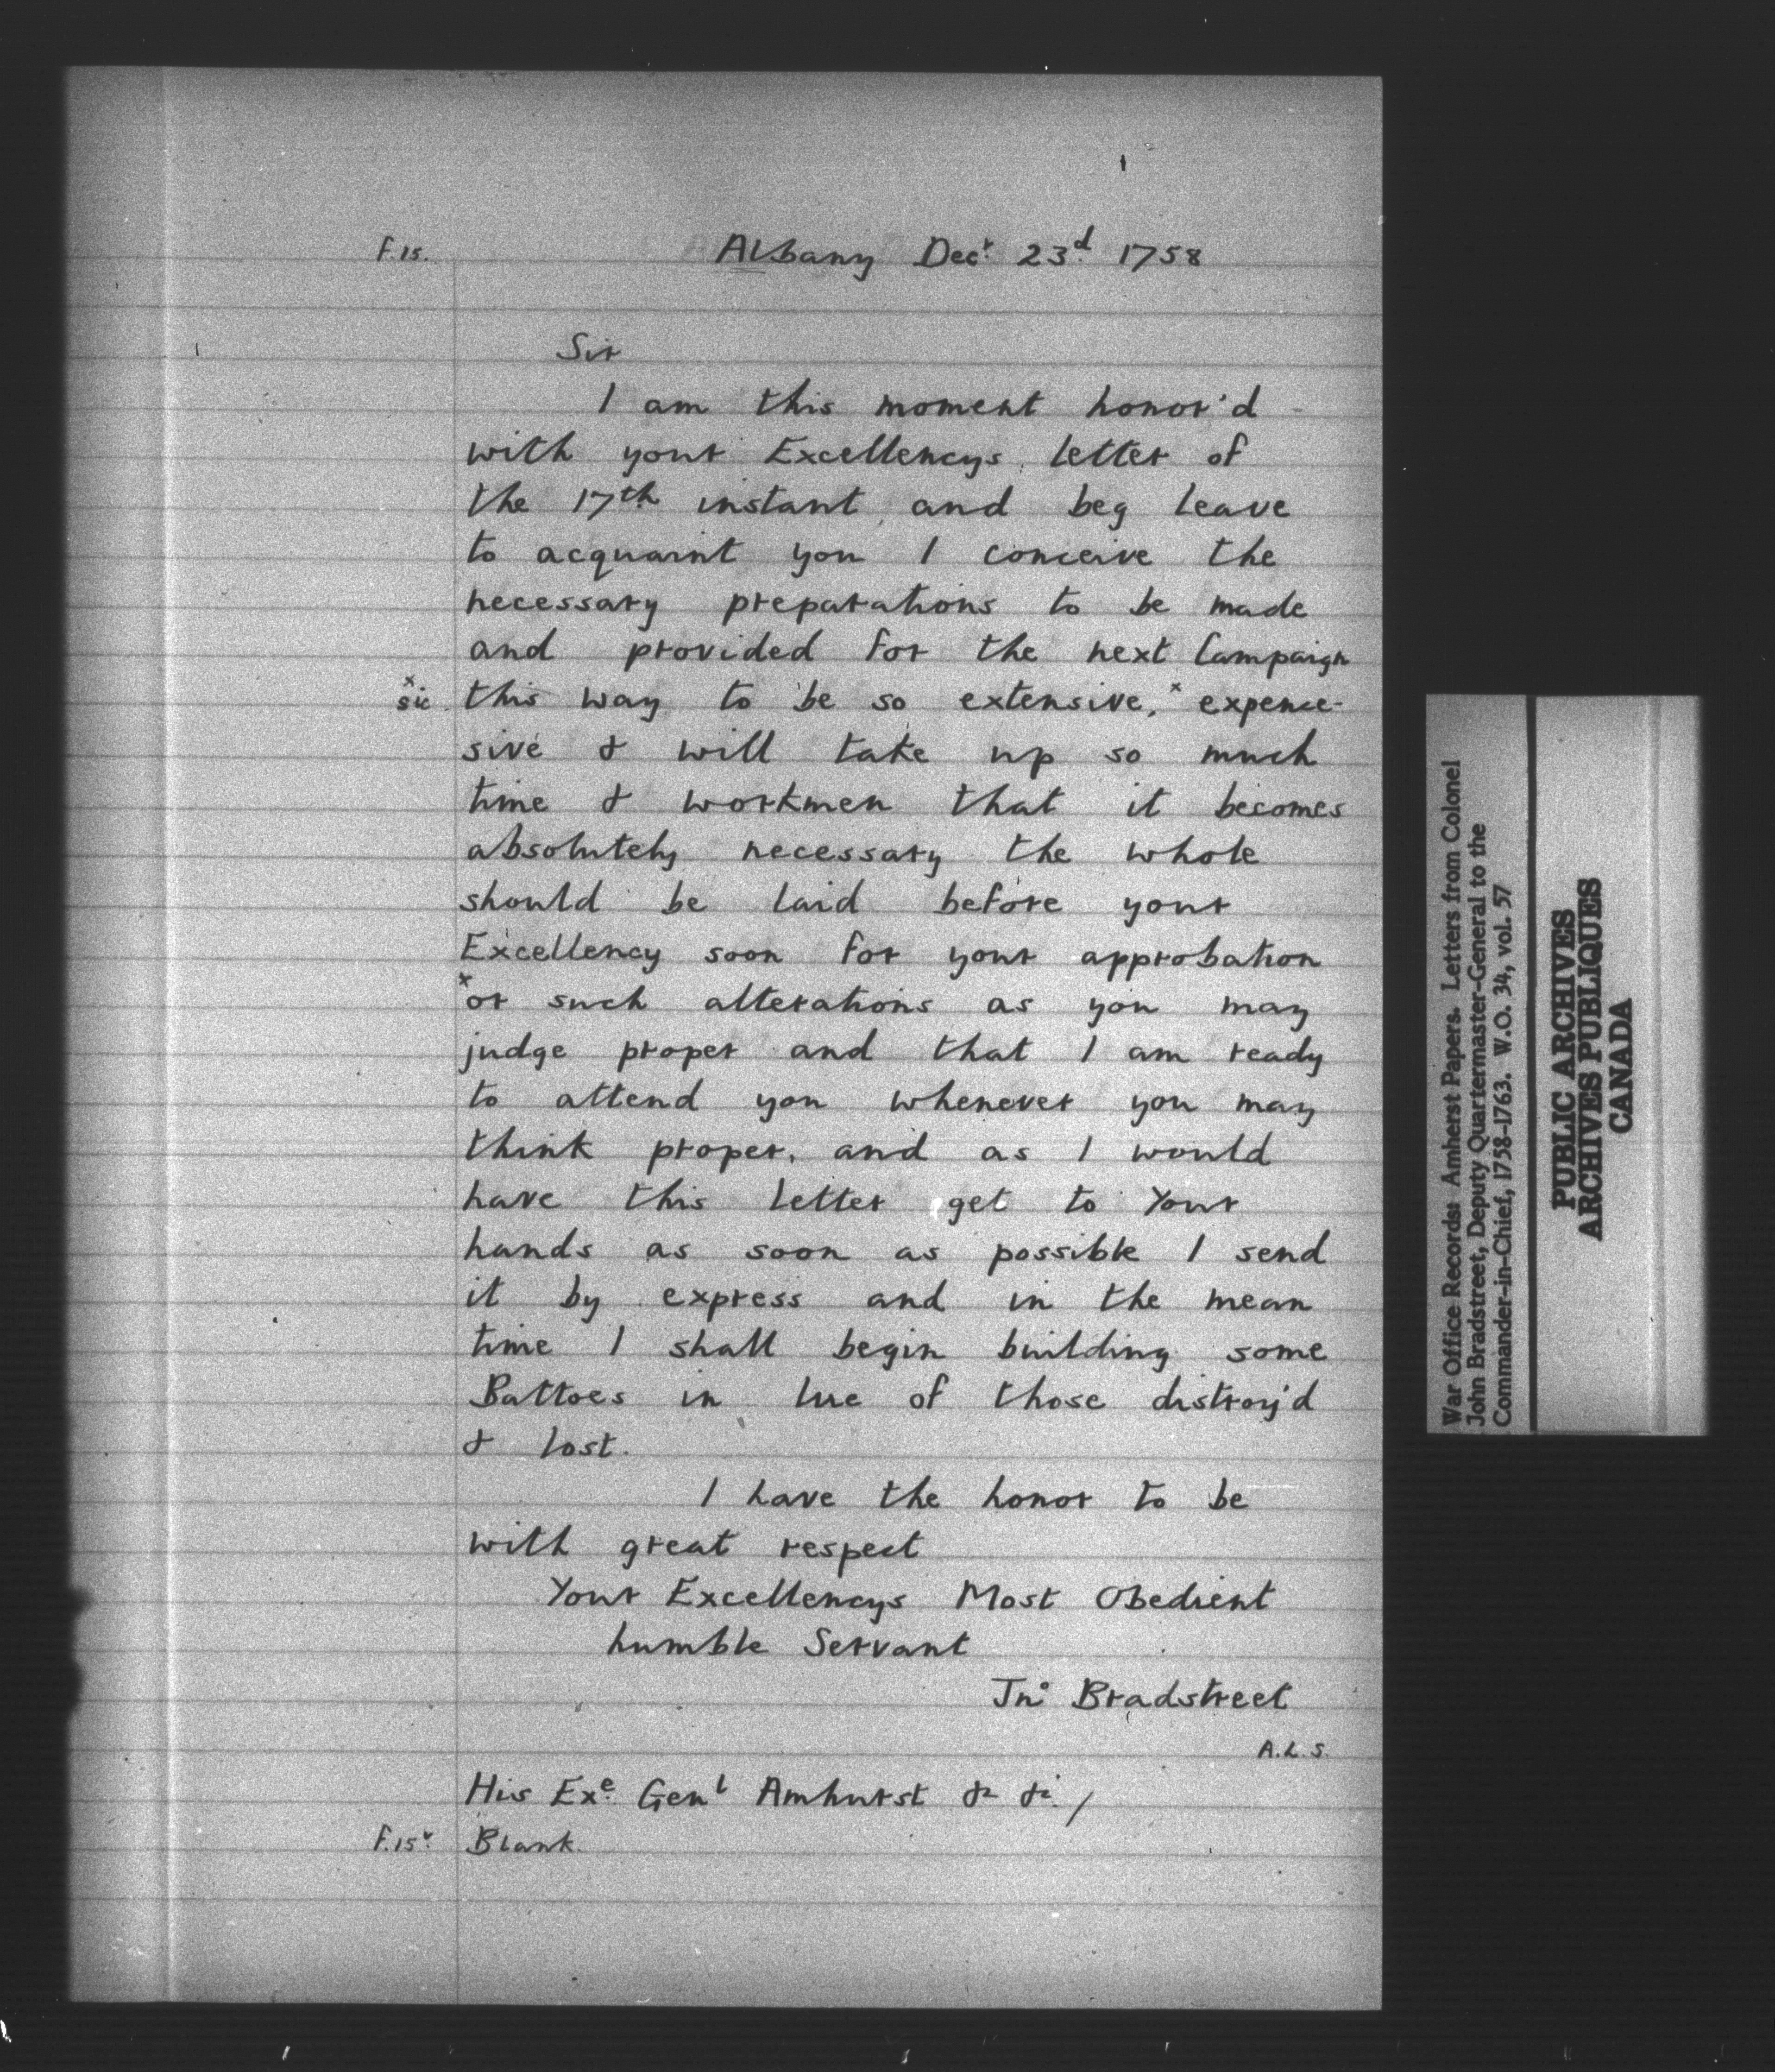 1
F.15. Albany Decr. 23d. 1758
Sir
I am this moment honor'd
with your Excellencys letter of
the 17th instant and beg leave
to acquaint you I conceive the
necessary preparations to be made
and provided for the next Campaign
x sic this way to be so extensive, x expence-
sive & will take up so much
time & workmen that it becomes
absolutely necessary the whole
should be laid before your
Excellency soon for your approbation
x or such alterations as you may
judge proper and that I am ready
to attend you whenever you may
think proper, and as I would
have this letter get to Your
hands as soon as possible I send
it by express and in the mean
time I shall begin building some
Battoes in lue of those distroy'd
& lost.
I have the honor to be
with great respect
Your Excellencys Most Obedient
humble Servant
Jno Bradstreet
A.L.S.
His Exe. Genl Amhurst &c &c /
F.15v. Blank.
War Office Records: Amherst Papers. Letters from Colonel
John Bradstreet, Deputy Quartermaster-General to the
Commander-in-Chief, 1758-1763. W.O. 34, vol. 57
PUBLIC ARCHIVES
ARCHIVES PUBLIQUES
CANADA